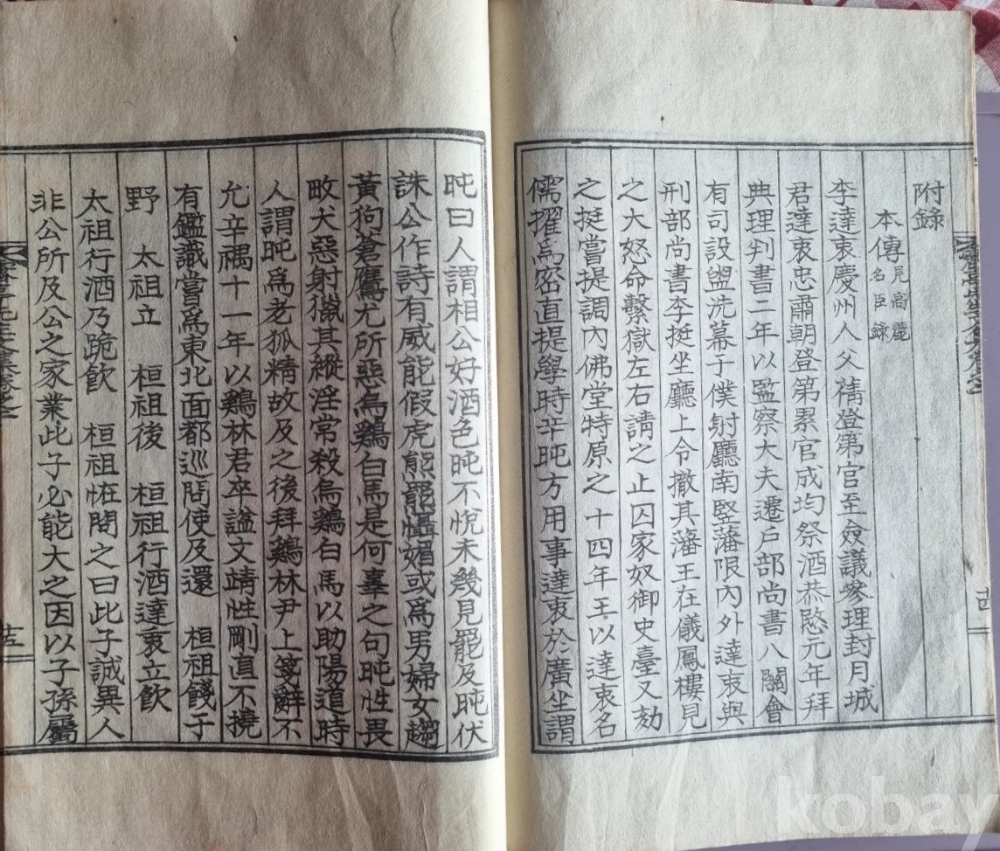 附錄
本傳 見高麗名臣錄
李達衷慶州人父蒨登第官至僉議參理封月城
君達衷忠肅朝登第累官成均祭酒恭愍元年拜
典理判書二年以監察大夫遷戶部尚書八關會
有司設盥洗幕于僕射廳南竪藩限內外達衷與
刑部尚書李挺坐廳上令撤其藩王在儀鳳樓見
之大怒命繫獄左右請之止囚家奴御史臺又劾
之挺嘗提調內佛堂特原之十四年王以達衷名
儒擢爲密直提學時辛旽方用事達衷於廣坐謂
旽曰人謂相公好酒色旽不悅未幾見罷及旽伏
誅公作詩有威能假虎熊羆慴媚或爲男婦女趨
黃狗蒼鷹尤所惡烏鷄白馬是何辜之句旽性畏
畋犬惡射獵其縱淫常殺烏鷄白馬以助陽道時
人謂旽爲老狐精故及之後拜鷄林尹上箋辭不
允辛禑十一年以鷄林君卒諡文靖性剛直不撓
有鑑識嘗爲東北面都巡問使及還 桓祖餞于
野 太祖立 桓祖後 桓祖行酒達衷立飮
太祖行酒乃跪飮 桓祖怪問之曰此子誠異人
非公所及公之家業此子必能大之因以子孫屬
十五
kobay